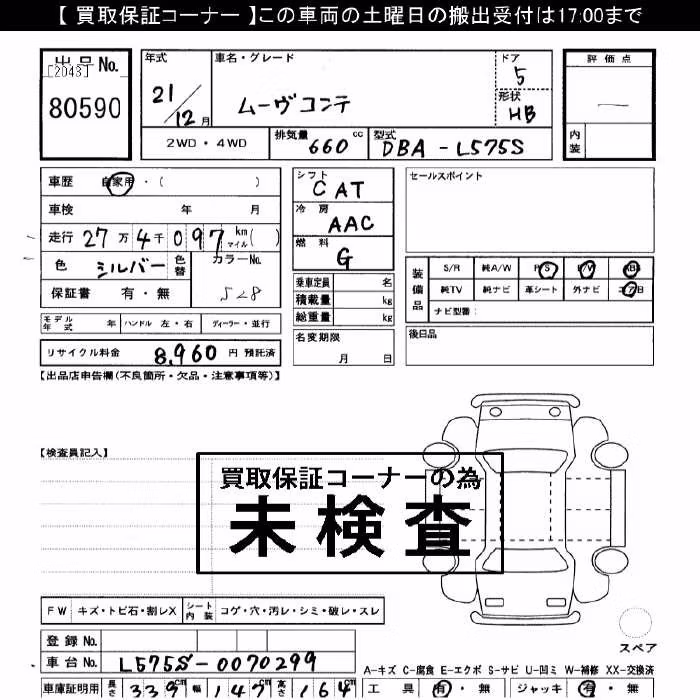 【 買取保証コーナー 】この車両の土曜日の搬出受付は17:00まで
出品No.
[2043]
80590
年式
21
12月
車名・グレード
ムーヴコンテ
ドア
5
形状
HB
評価点
内装
2WD・4WD
排気量 660 cc
型式 DBA-L575S
車歴 自家用・( )
車検 年 月
走行 27万4千097 km マイル( )
色 シルバー 色替 カラーNo. S28
保証書 有・無
シフト
CAT
冷房
AAC
燃料
G
乗車定員 名
積載量 kg
総重量 kg
名変期限
月 日
セールスポイント
装備品
S/R 純A/W P/S P/W ABS
純TV 純ナビ 革シート 外ナビ エアB
ナビ型番:
後日品
モデル年式 年 ハンドル 左・右 ディーラー・並行
リサイクル料金 8,960 円 預託済
【出品店申告欄(不良箇所・欠品・注意事項等)】
【検査員記入】
買取保証コーナーの為
未検査
FW キズ・トビ石・割レX シート内装 コゲ・穴・汚レ・シミ・破レ・スレ
スペア
登録No.
車台No. L575S-0070299
A-キズ C-腐食 E-エクボ S-サビ U-凹ミ W-補修 XX-交換済
車庫証明用 長さ 339cm 幅 147cm 高さ 164cm
工具 有・無 ジャッキ 有・無